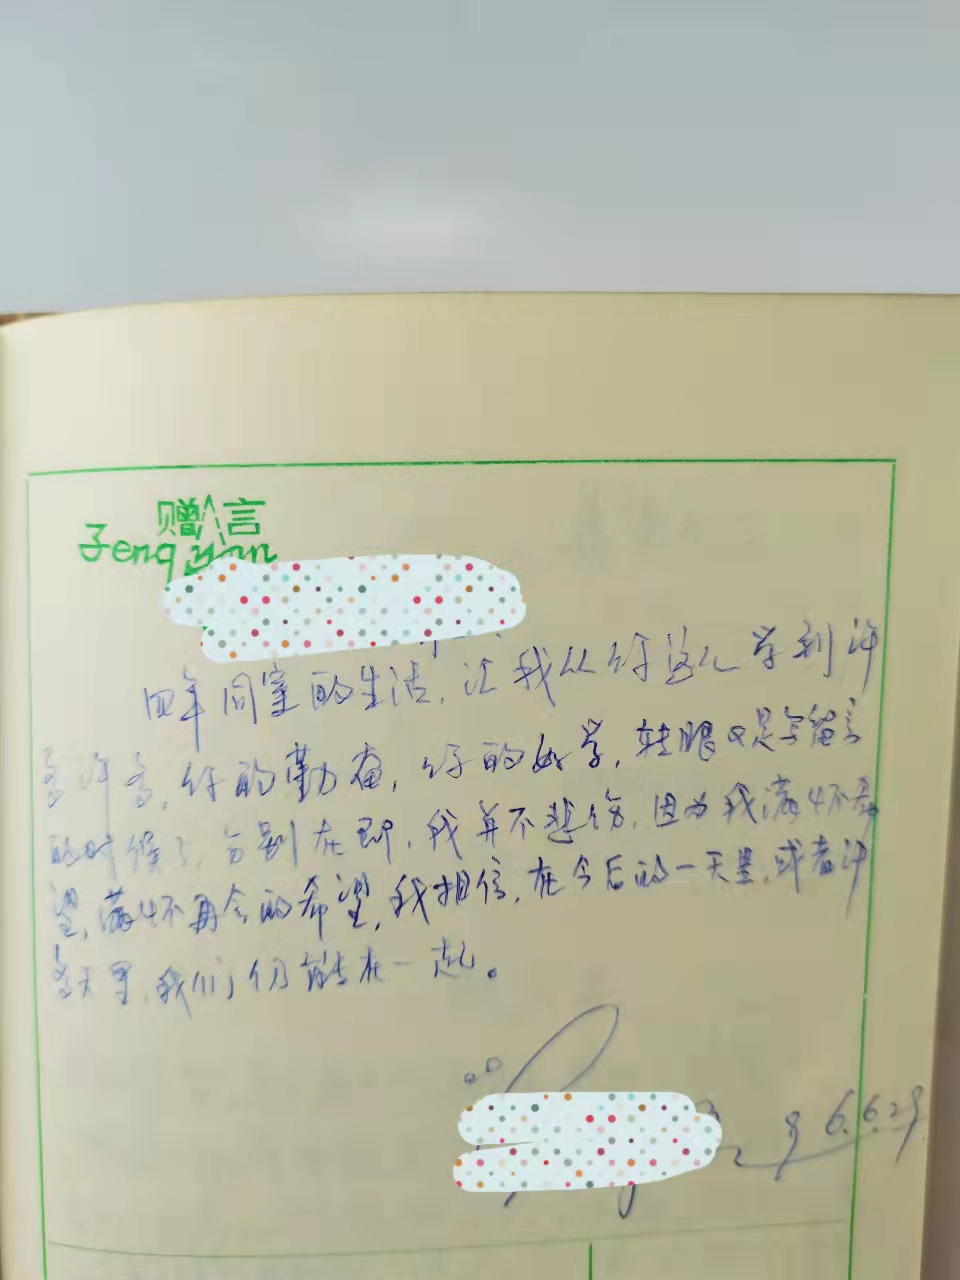 赠言
Zeng yan
四年同室的生活，让我从你这儿学到许
多许多，你的勤奋，你的好学，转眼又是写留言
的时候了，分别在即，我并不悲伤，因为我满怀希
望，满怀再会的希望，我相信，在今后的一天里，或者许
多天里，我们仍能在一起。
96.6.29